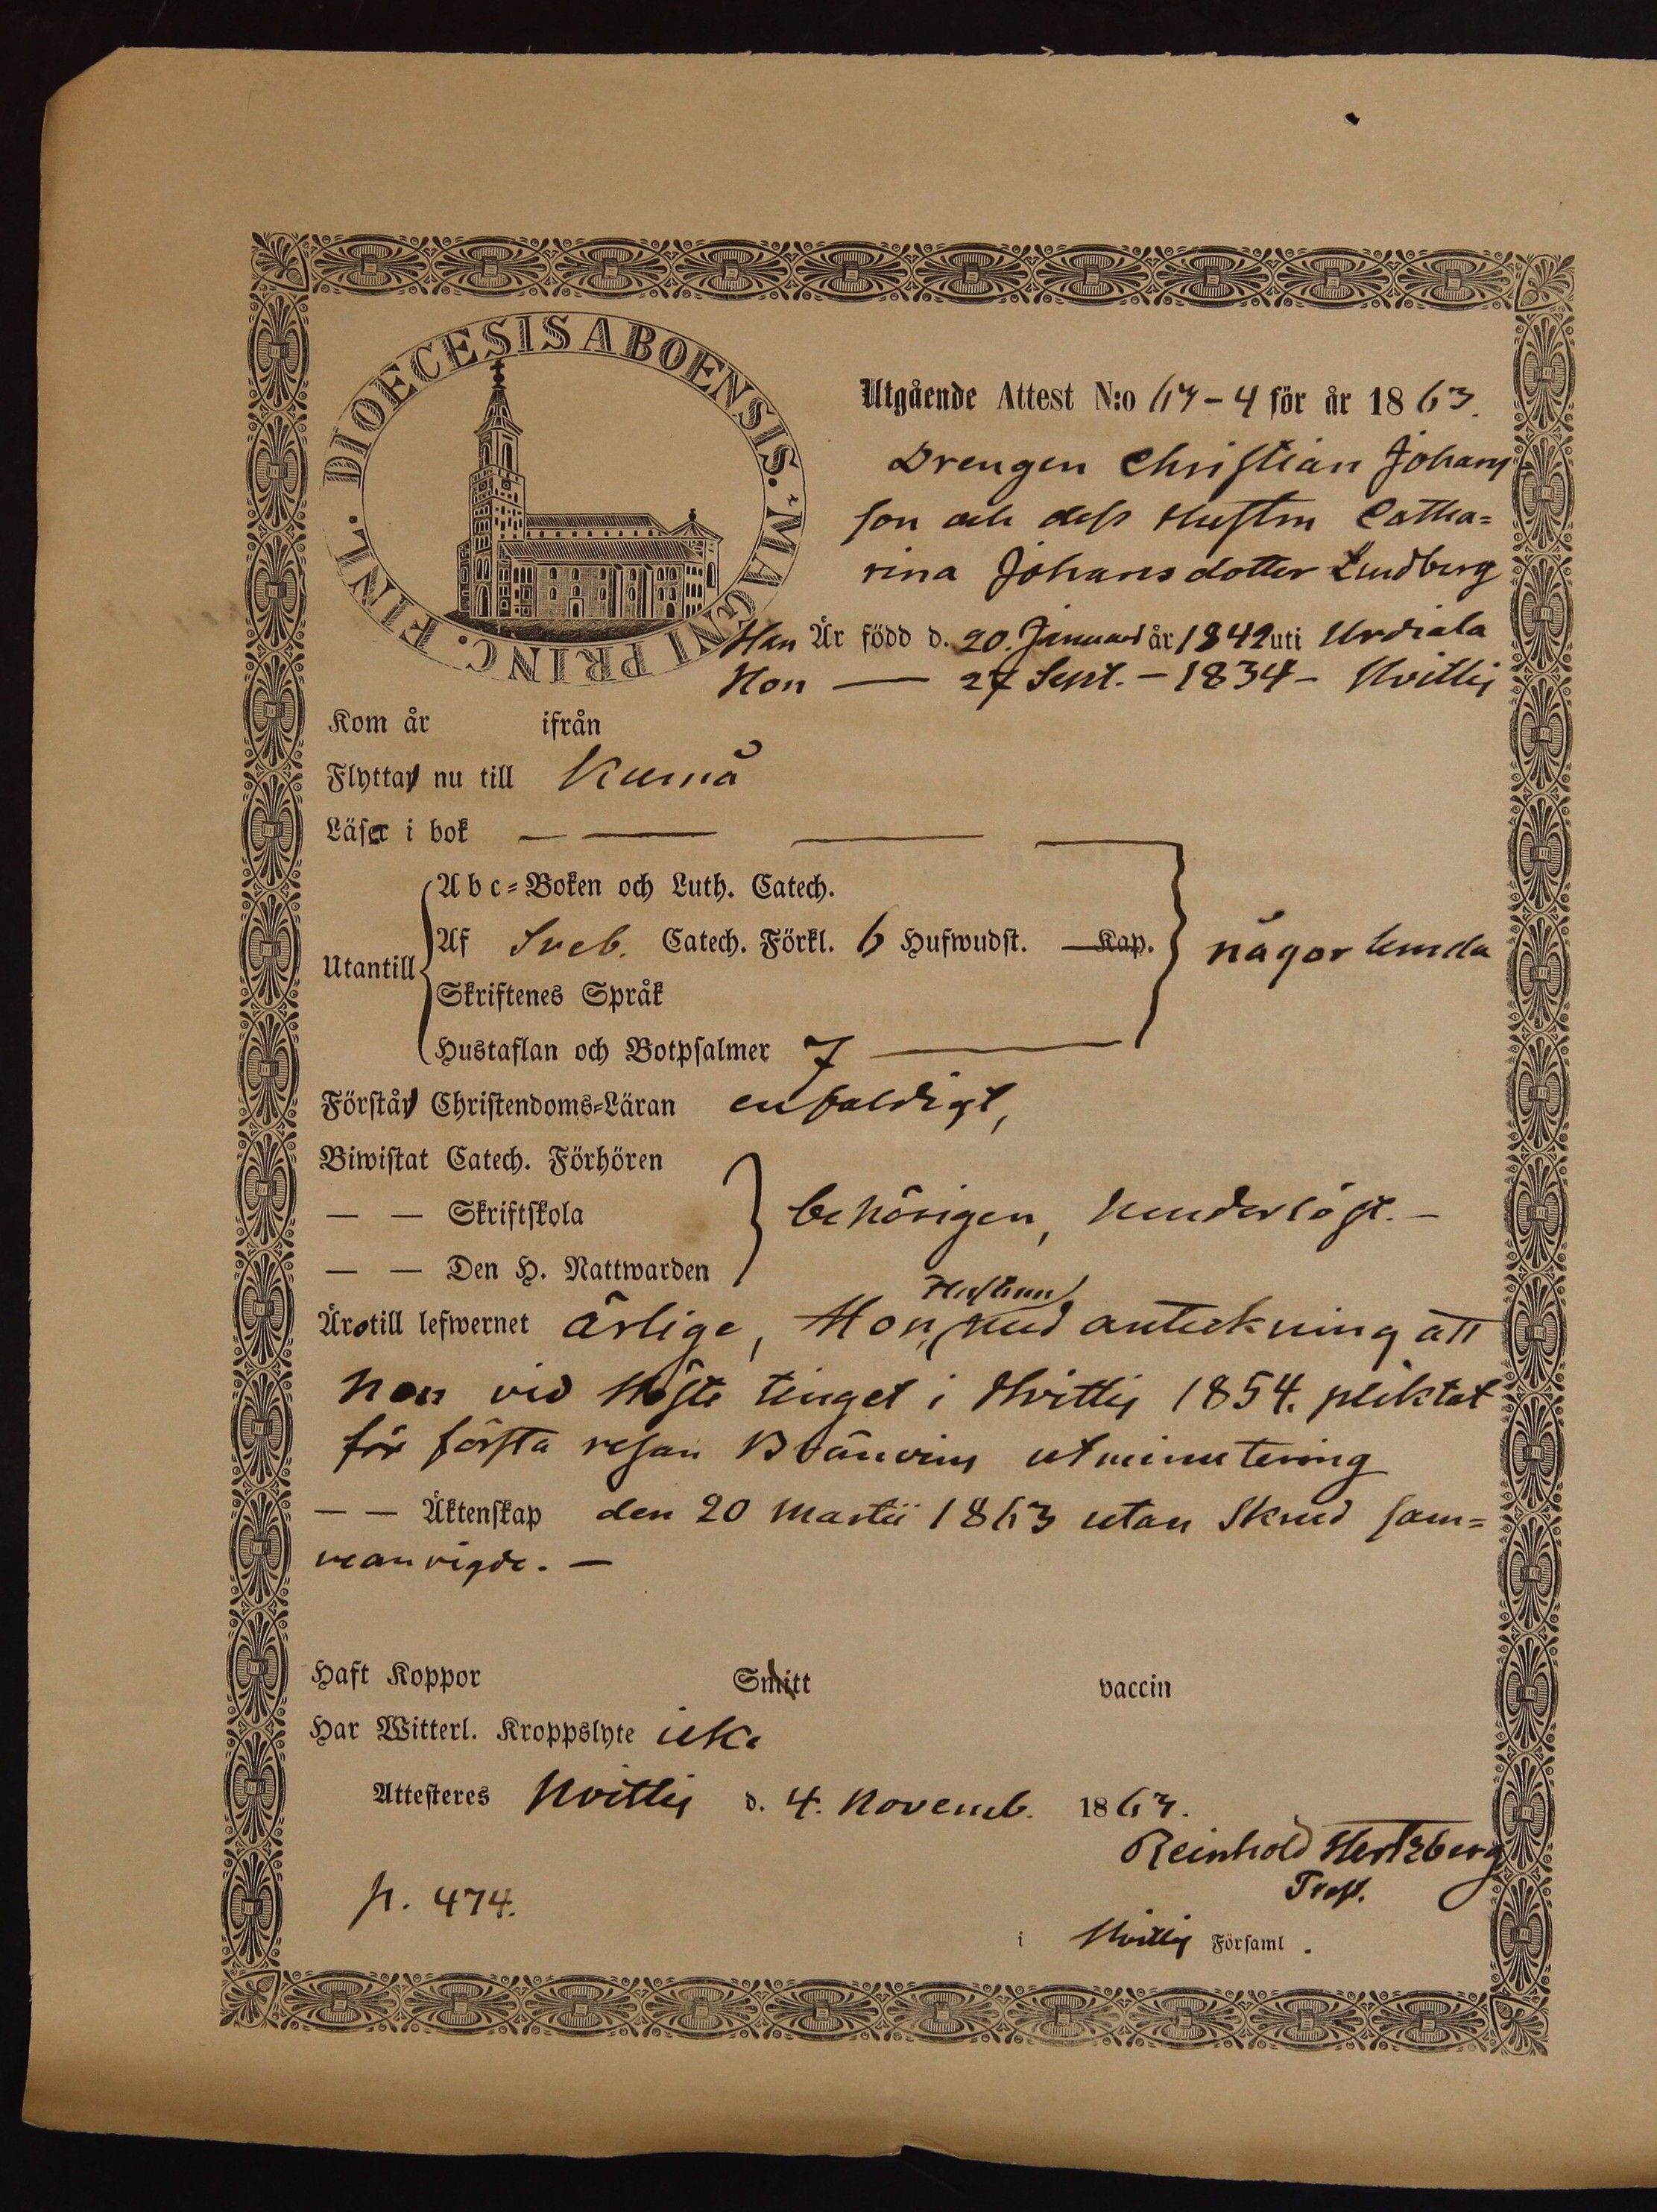 DIOECESIS ABOENSIS. MAGNI PRINC. FINL.
Utgående Attest N:o 63-4 för år 1863.
Drengen Christian Johans
son och dess Hustru Catha=
rina Johansdotter Lundberg
Han Är född d. 20. Januari år 1842 uti Urdiala
Hon — 27 Sept. - 1834 - Hvittis
Kom år ifrån
Flytta nu till Kumå
Läsa i bok — — — —
Abc=Boken och Luth. Catech.
Af Sveb. Catech. Förkl. 6 Hufwudst. — Kap.
Utantill någorlunda
Skriftenes Språk
Hustaflan och Botpsalmer 7 —
Förstå Christendoms=Läran enfaldigt,
Biwistat Catech. Förhören
— — Skriftskola behörigen, hinderlöst. -
— — Den H. Nattwarden
Hustrun
Äro till lefwernet ärlige, Hon, med anteckning att
hon vid Höste tinget i Hvittis 1854. pliktat
för första resan Bränvins utminutering
— — Äktenskap den 20 Martii 1863 utan Skrud sam=
manvigde. —
Haft Koppor Smitt vaccin
Har Witterl. Kroppslyte icke
Attesteres Hvittis d. 4. Novemb. 1863.
Reinhold Hertzberg
Prost.
p. 474.
i Hvittis Församl.